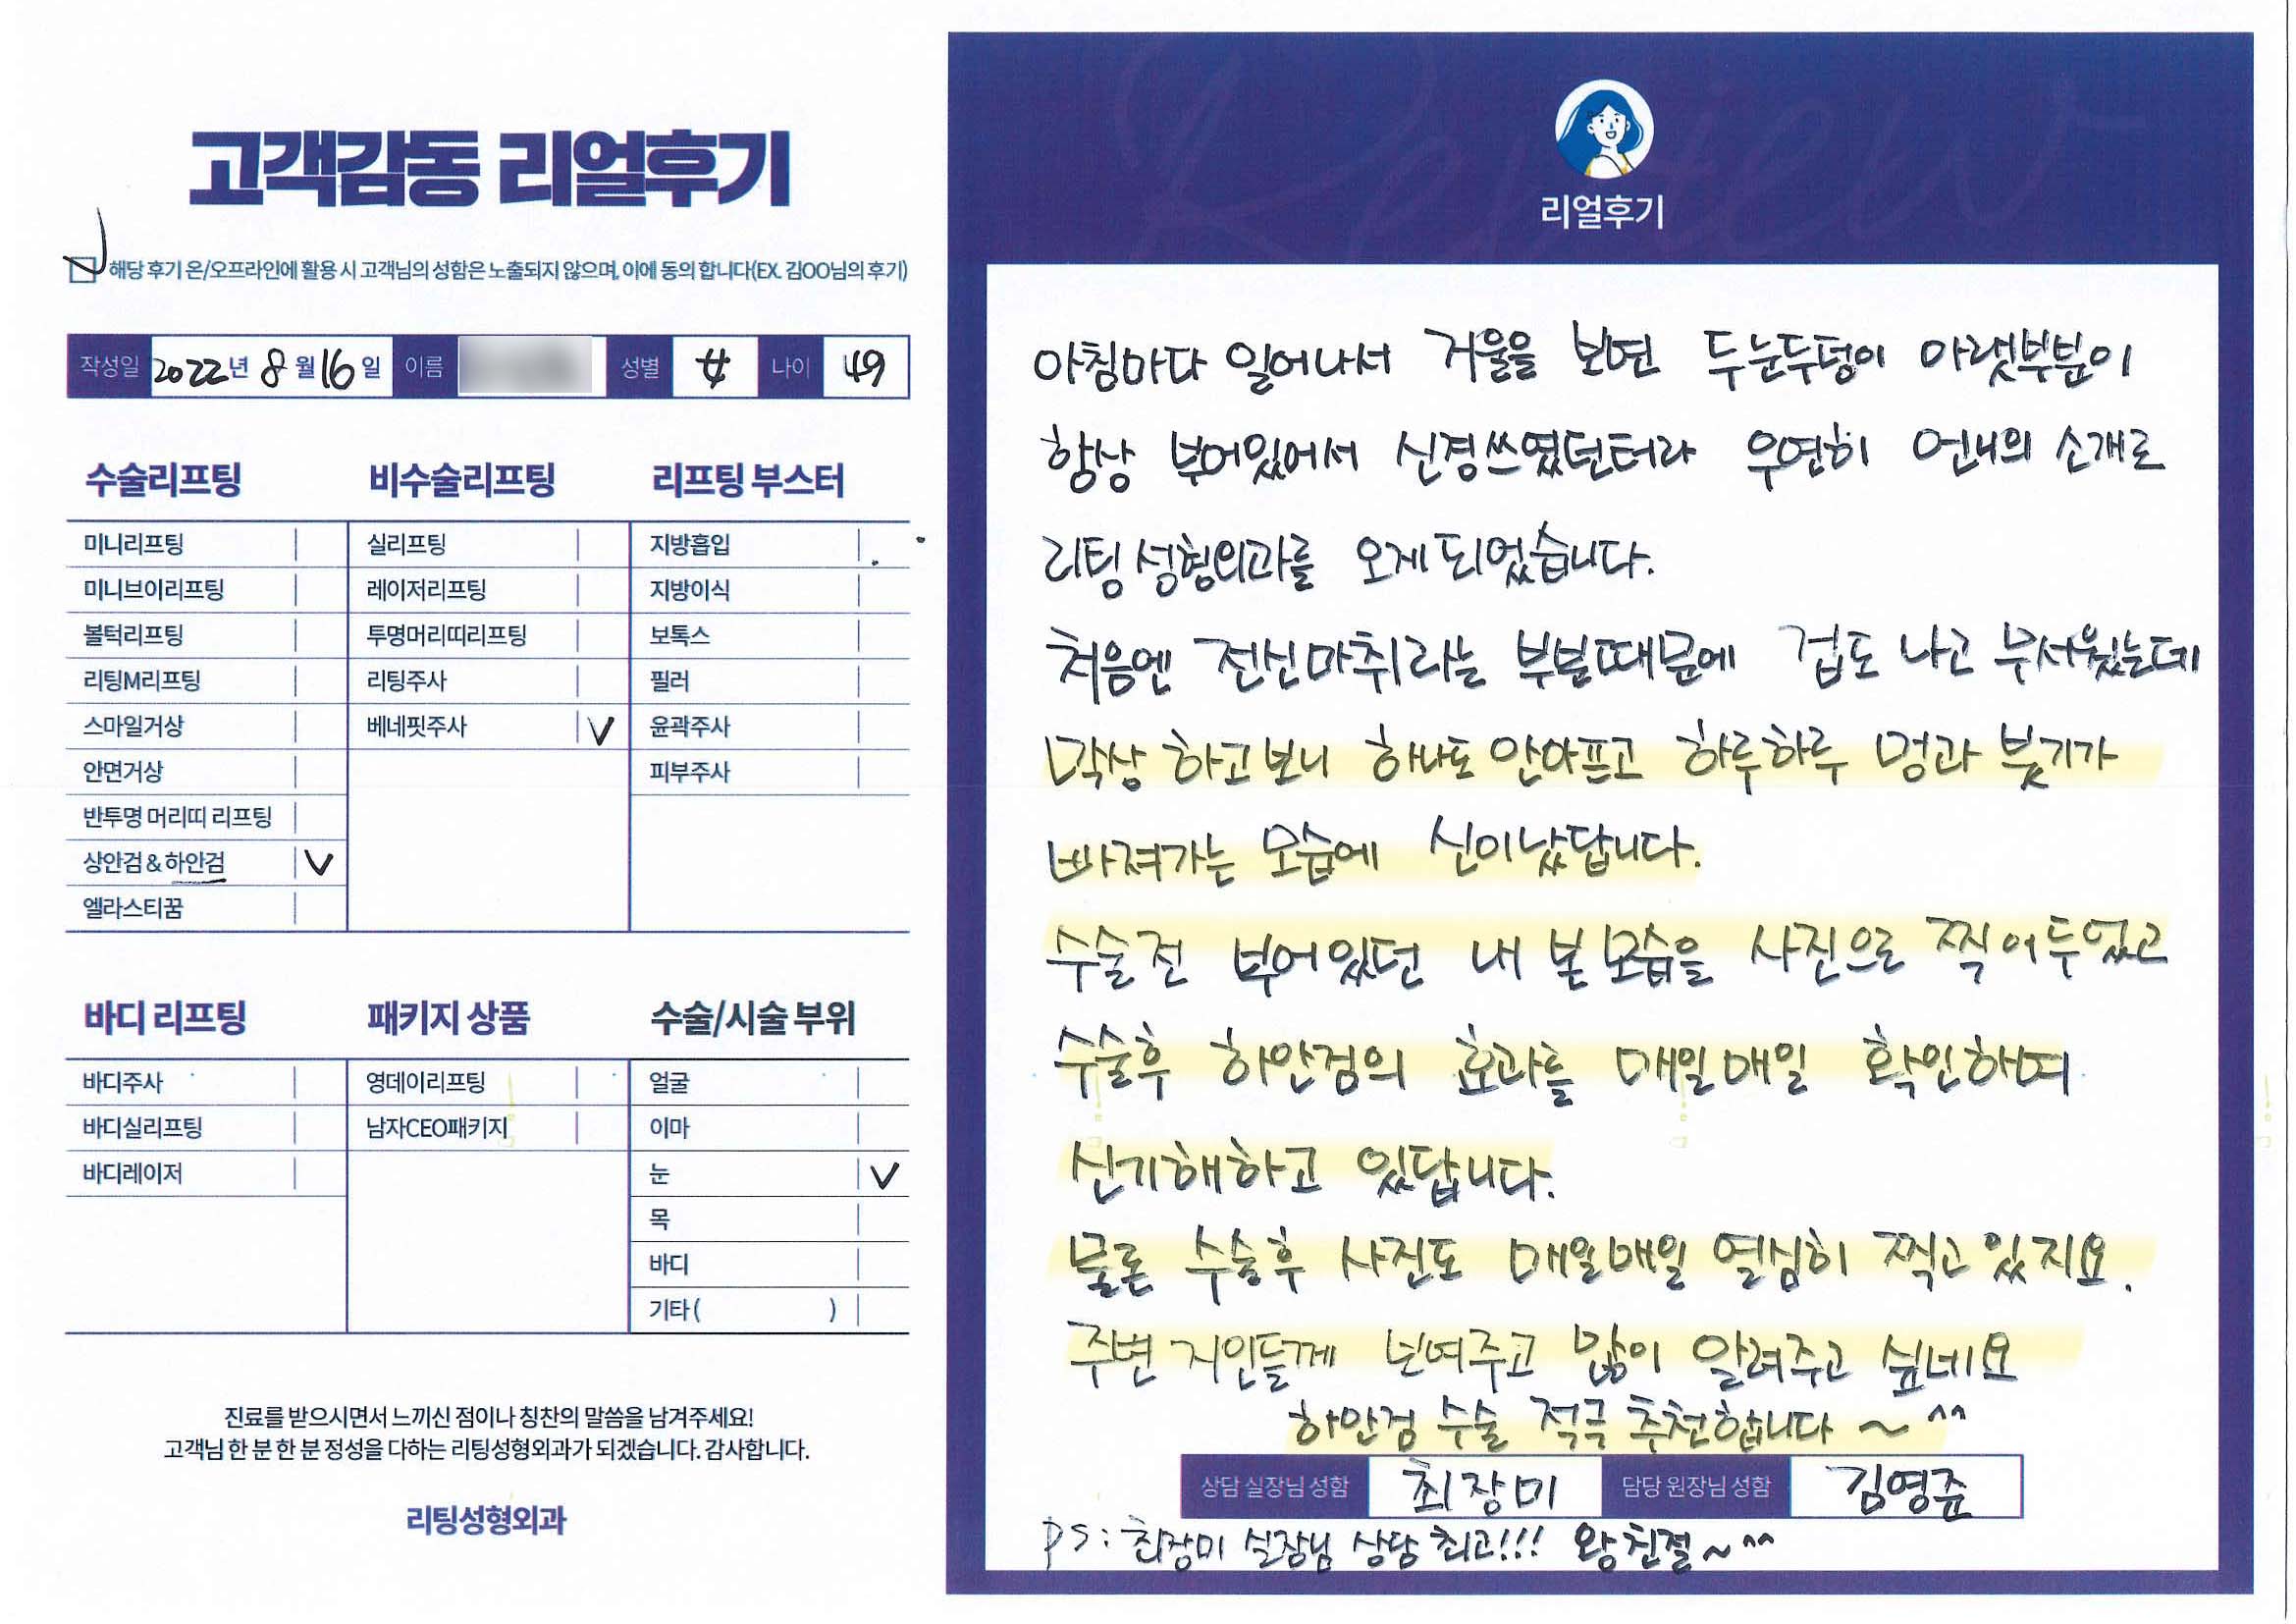 고객감동 리얼후기
해당 후기 온/오프라인에 활용 시 고객님의 성함은 노출되지 않으며, 이에 동의 합니다(EX. 김OO님의 후기)
작성일 2022년 8월 16일 이름 성별 女 나이 49
수술리프팅
미니리프팅
미니브이리프팅
볼턱리프팅
리팅M리프팅
스마일거상
안면거상
반투명 머리띠 리프팅
상안검 & 하안검 V
엘라스티꿈
비수술리프팅
실리프팅
레이저리프팅
투명머리띠리프팅
리팅주사
베네핏주사 V
리프팅 부스터
지방흡입
지방이식
보톡스
필러
윤곽주사
피부주사
바디 리프팅
바디주사
바디실리프팅
바디레이저
패키지 상품
영데이리프팅
남자CEO패키지
수술/시술 부위
얼굴
이마
눈 V
목
바디
기타 ( )
진료를 받으시면서 느끼신 점이나 칭찬의 말씀을 남겨주세요!
고객님 한 분 한 분 정성을 다하는 리팅성형외과가 되겠습니다. 감사합니다.
리팅성형외과
Review
리얼후기
아침마다 일어나서 거울을 보면 두눈두덩이 아랫부분이
항상 부어있어서 신경쓰였던터라 우연히 언니의 소개로
리팅성형외과를 오게되었습니다.
처음엔 전신마취라는 부분때문에 겁도 나고 무서웠는데
막상 하고보니 하나도 안아프고 하루하루 멍과 붓기가
빠져가는 모습에 신이났답니다.
수술전 부어있던 내 본모습을 사진으로 찍어두었고
수술후 하안검의 효과를 매일매일 확인하며
신기해하고 있답니다.
물론 수술후 사진도 매일매일 열심히 찍고있지요.
주변 지인들께 보여주고 많이 알려주고 싶네요
하안검 수술 적극 추천합니다~ ^^
상담 실장님 성함 최장미 담당 원장님 성함 김영준
PS: 최장미 실장님 상담 최고!!! 왕친절~^^